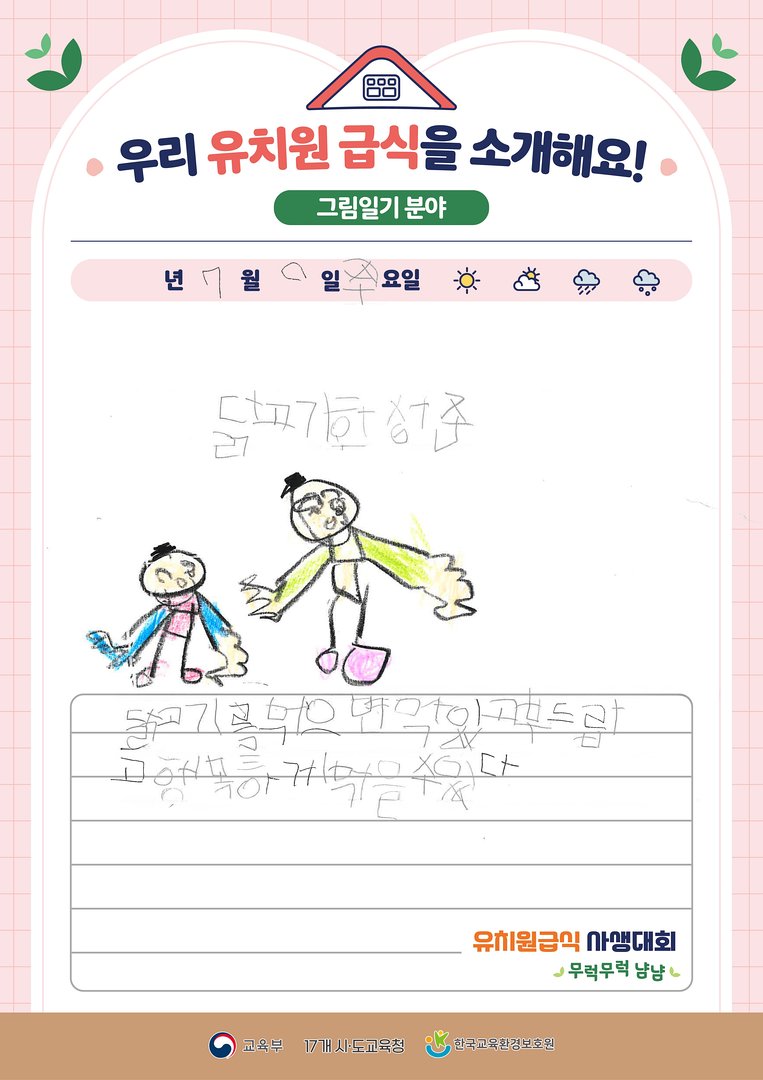 우리 유치원 급식을 소개해요!
그림일기 분야
년 7 월 일 요일
닭고기
닭고기를 먹으 면
고 행복하게 먹을 수 있다
유치원급식 사생대회
무럭무럭 냠냠
교육부 17개 시·도교육청 한국교육환경보호원